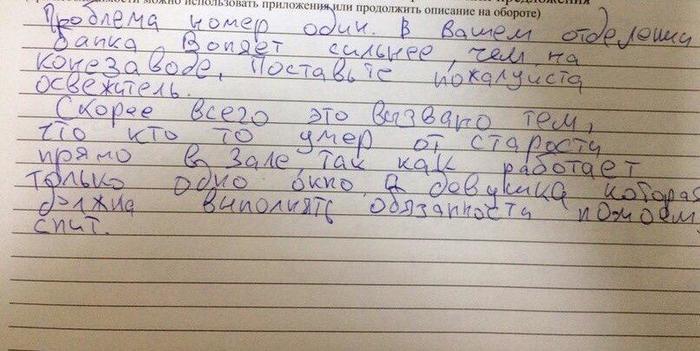 можно использовать приложения или продолжить описание на обороте)
Проблема номер один. В вашем отделении
банка Воняет сильнее, чем на
конезаводе, Поставьте пожалуиста
освежитель.
Скорее всего это вызвано тем,
что кто то умер от старости
прямо в зале, так как работает
только одно окно, а девушка которая
должна выполнять обязанности
спит.